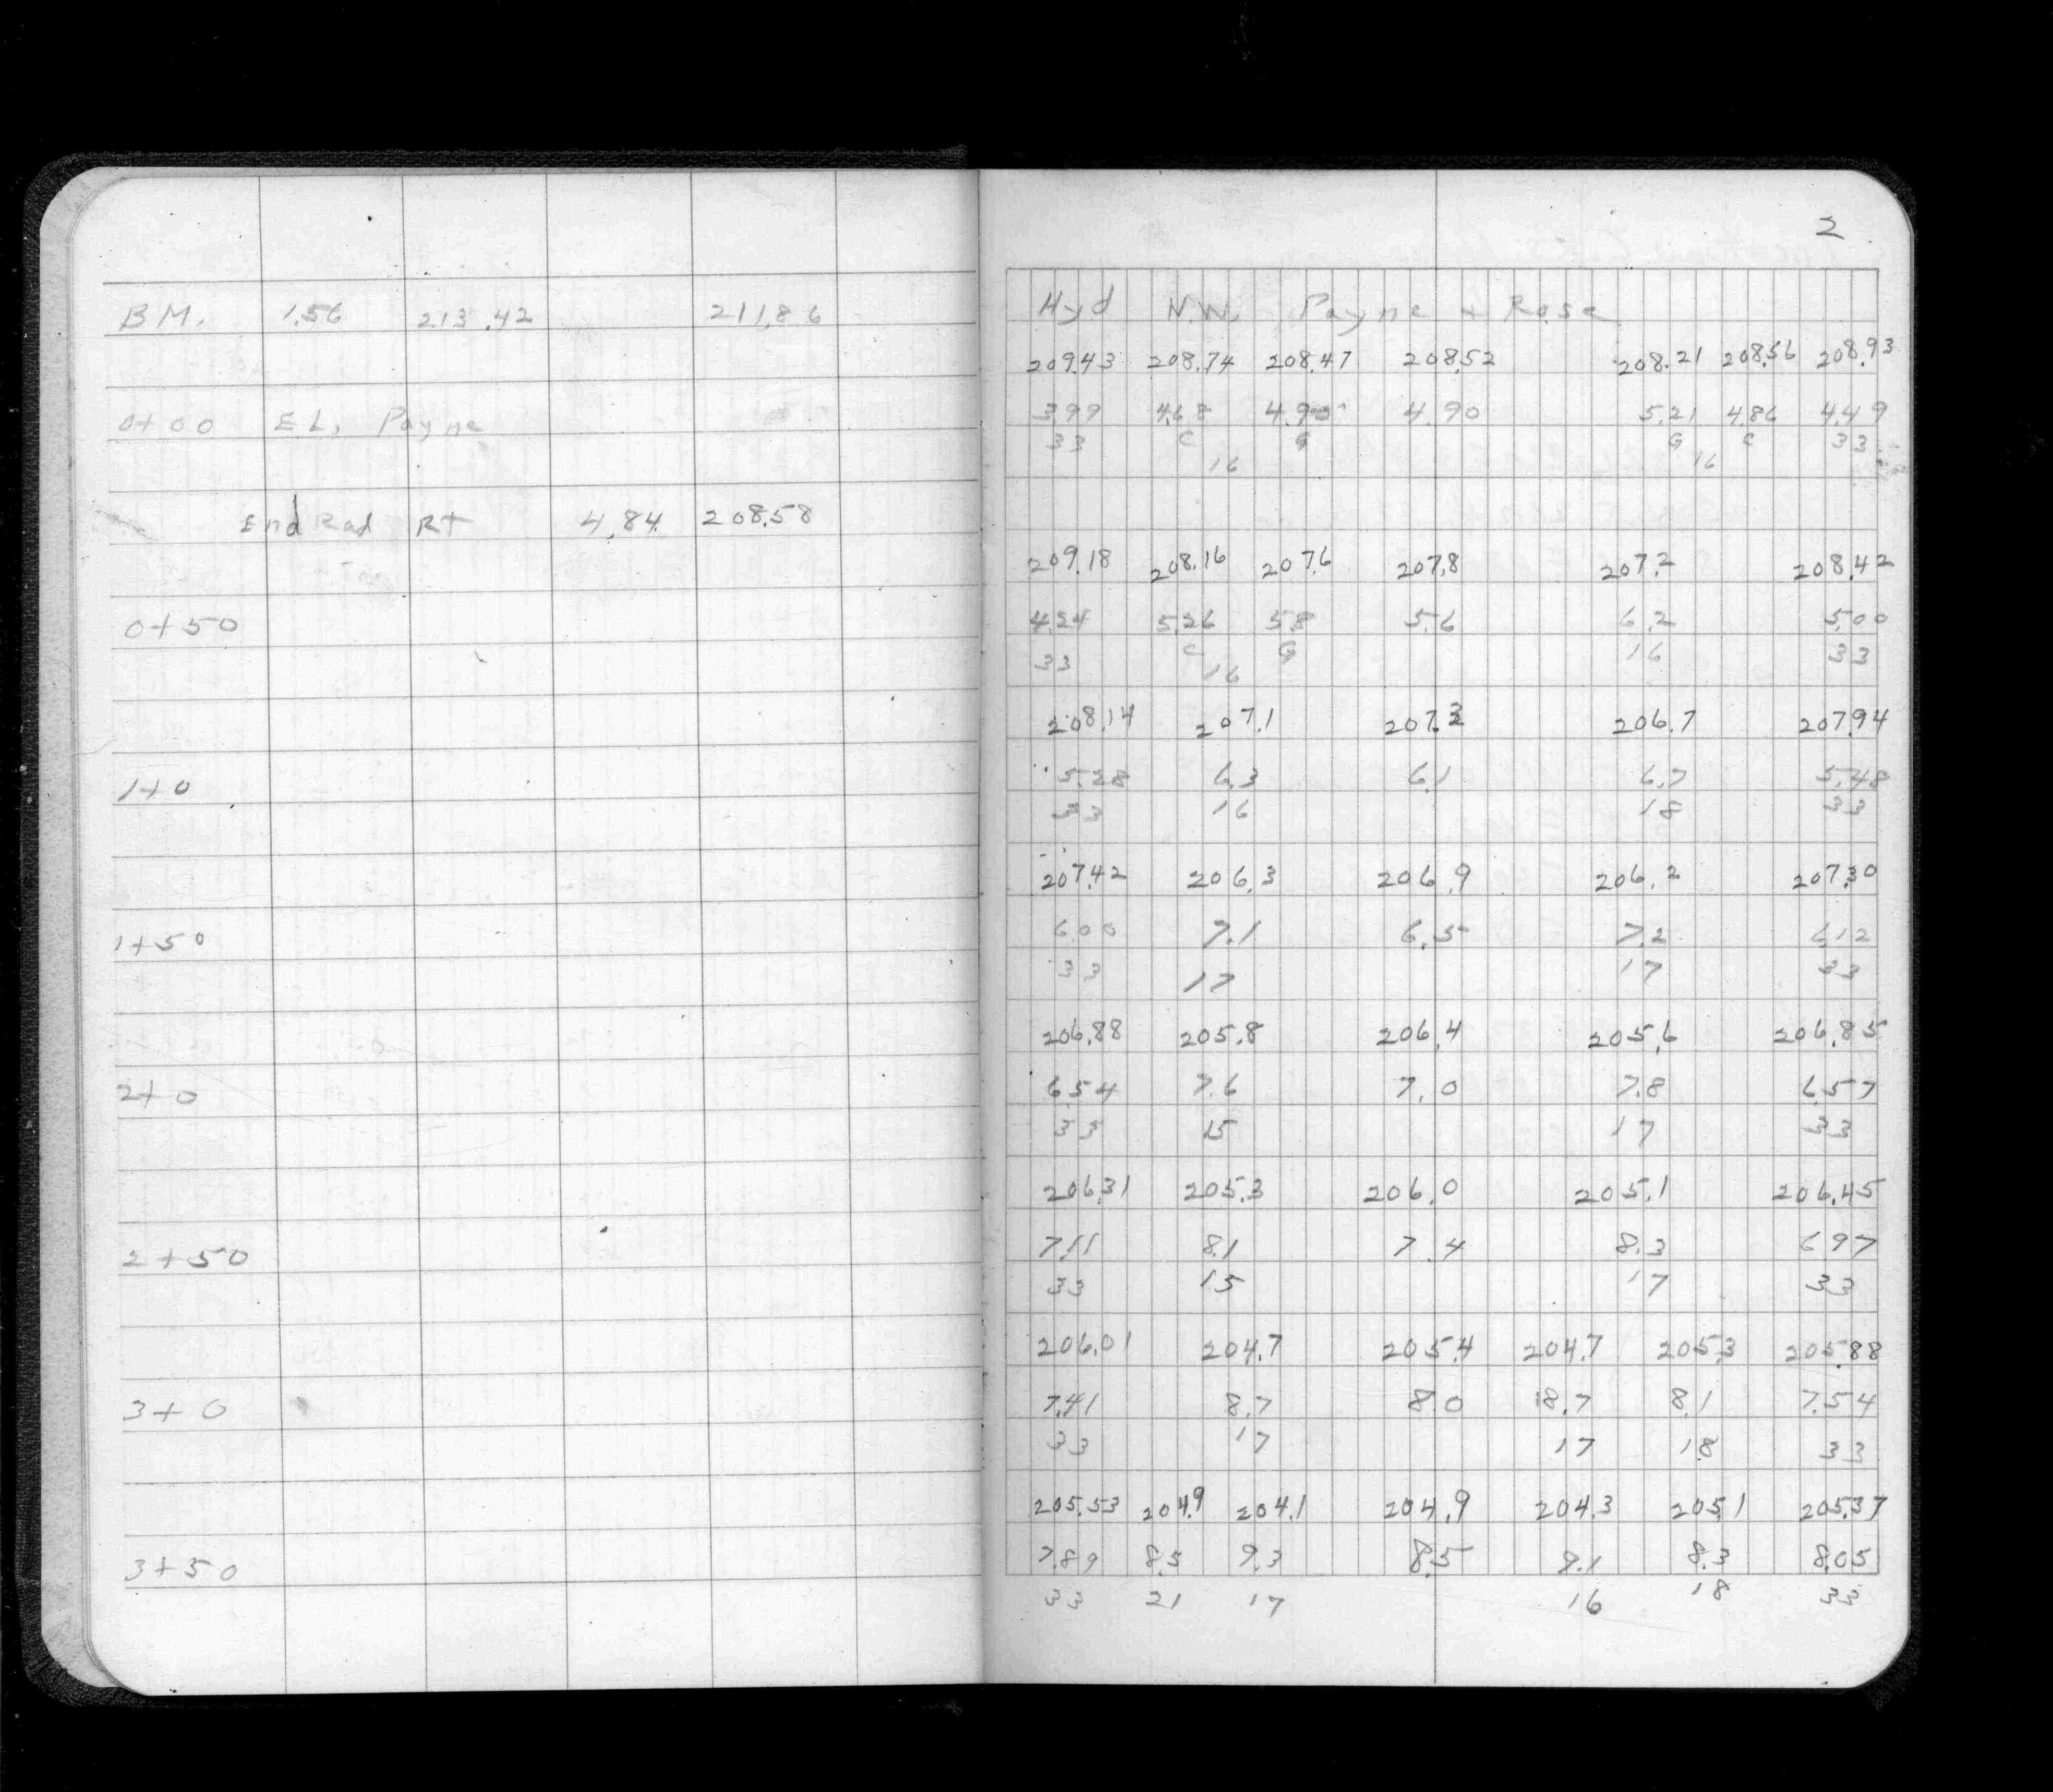 2
BM. 1.56 213.42 211.86 Hyd N.W. Payne + Rose
209.43 208.74 208.47 208.52 208.21 208.56 208.93
0+00 E.L. Payne 3.99 4.68 4.95 4.90 5.21 4.86 4.49
33 C G G C 33
16 16
End Rad Rt 4.84 208.58
209.18 208.16 207.6 207.8 207.2 208.42
0+50 4.24 5.26 5.8 5.6 6.2 5.00
33 C G 16 33
16
208.14 207.1 207.3 206.7 207.94
1+0 5.28 6.3 6.1 6.7 5.48
33 16 18 33
207.42 206.3 206.9 206.2 207.30
1+50 6.00 7.1 6.5 7.2 6.12
33 17 17 33
206.88 205.8 206.4 205.6 206.85
2+0 6.54 7.6 7.0 7.8 6.57
33 15 17 33
206.31 205.3 206.0 205.1 206.45
2+50 7.11 8.1 7.4 8.3 6.97
33 15 17 33
206.01 204.7 205.4 204.7 205.3 205.88
3+0 7.41 8.7 8.0 8.7 8.1 7.54
33 17 17 18 33
205.53 204.9 204.1 204.9 204.3 205.1 205.37
3+50 7.89 8.5 9.3 8.5 9.1 8.3 8.05
33 21 17 16 18 33